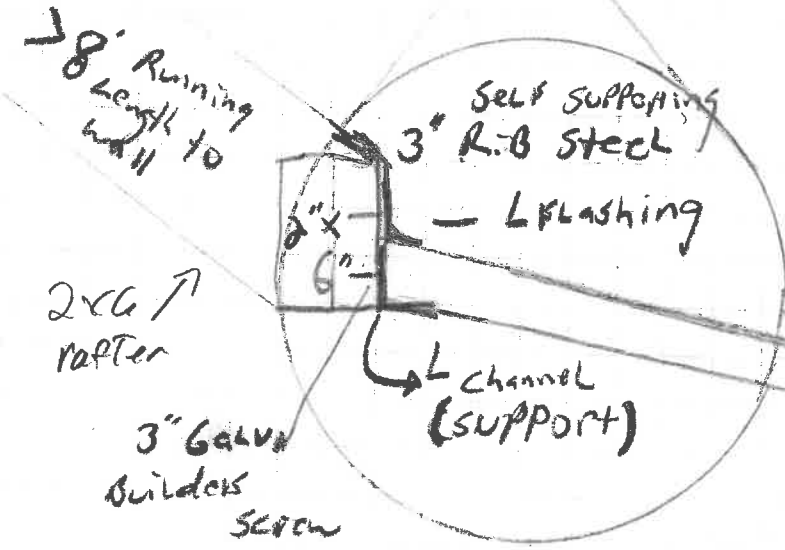 >8' Running
Length to
wall
Self Supporting
3" Rib Steel
L Flashing
2" x
6"
2x6
rafter
L Channel
(support)
3" Galv
Builders
Screw